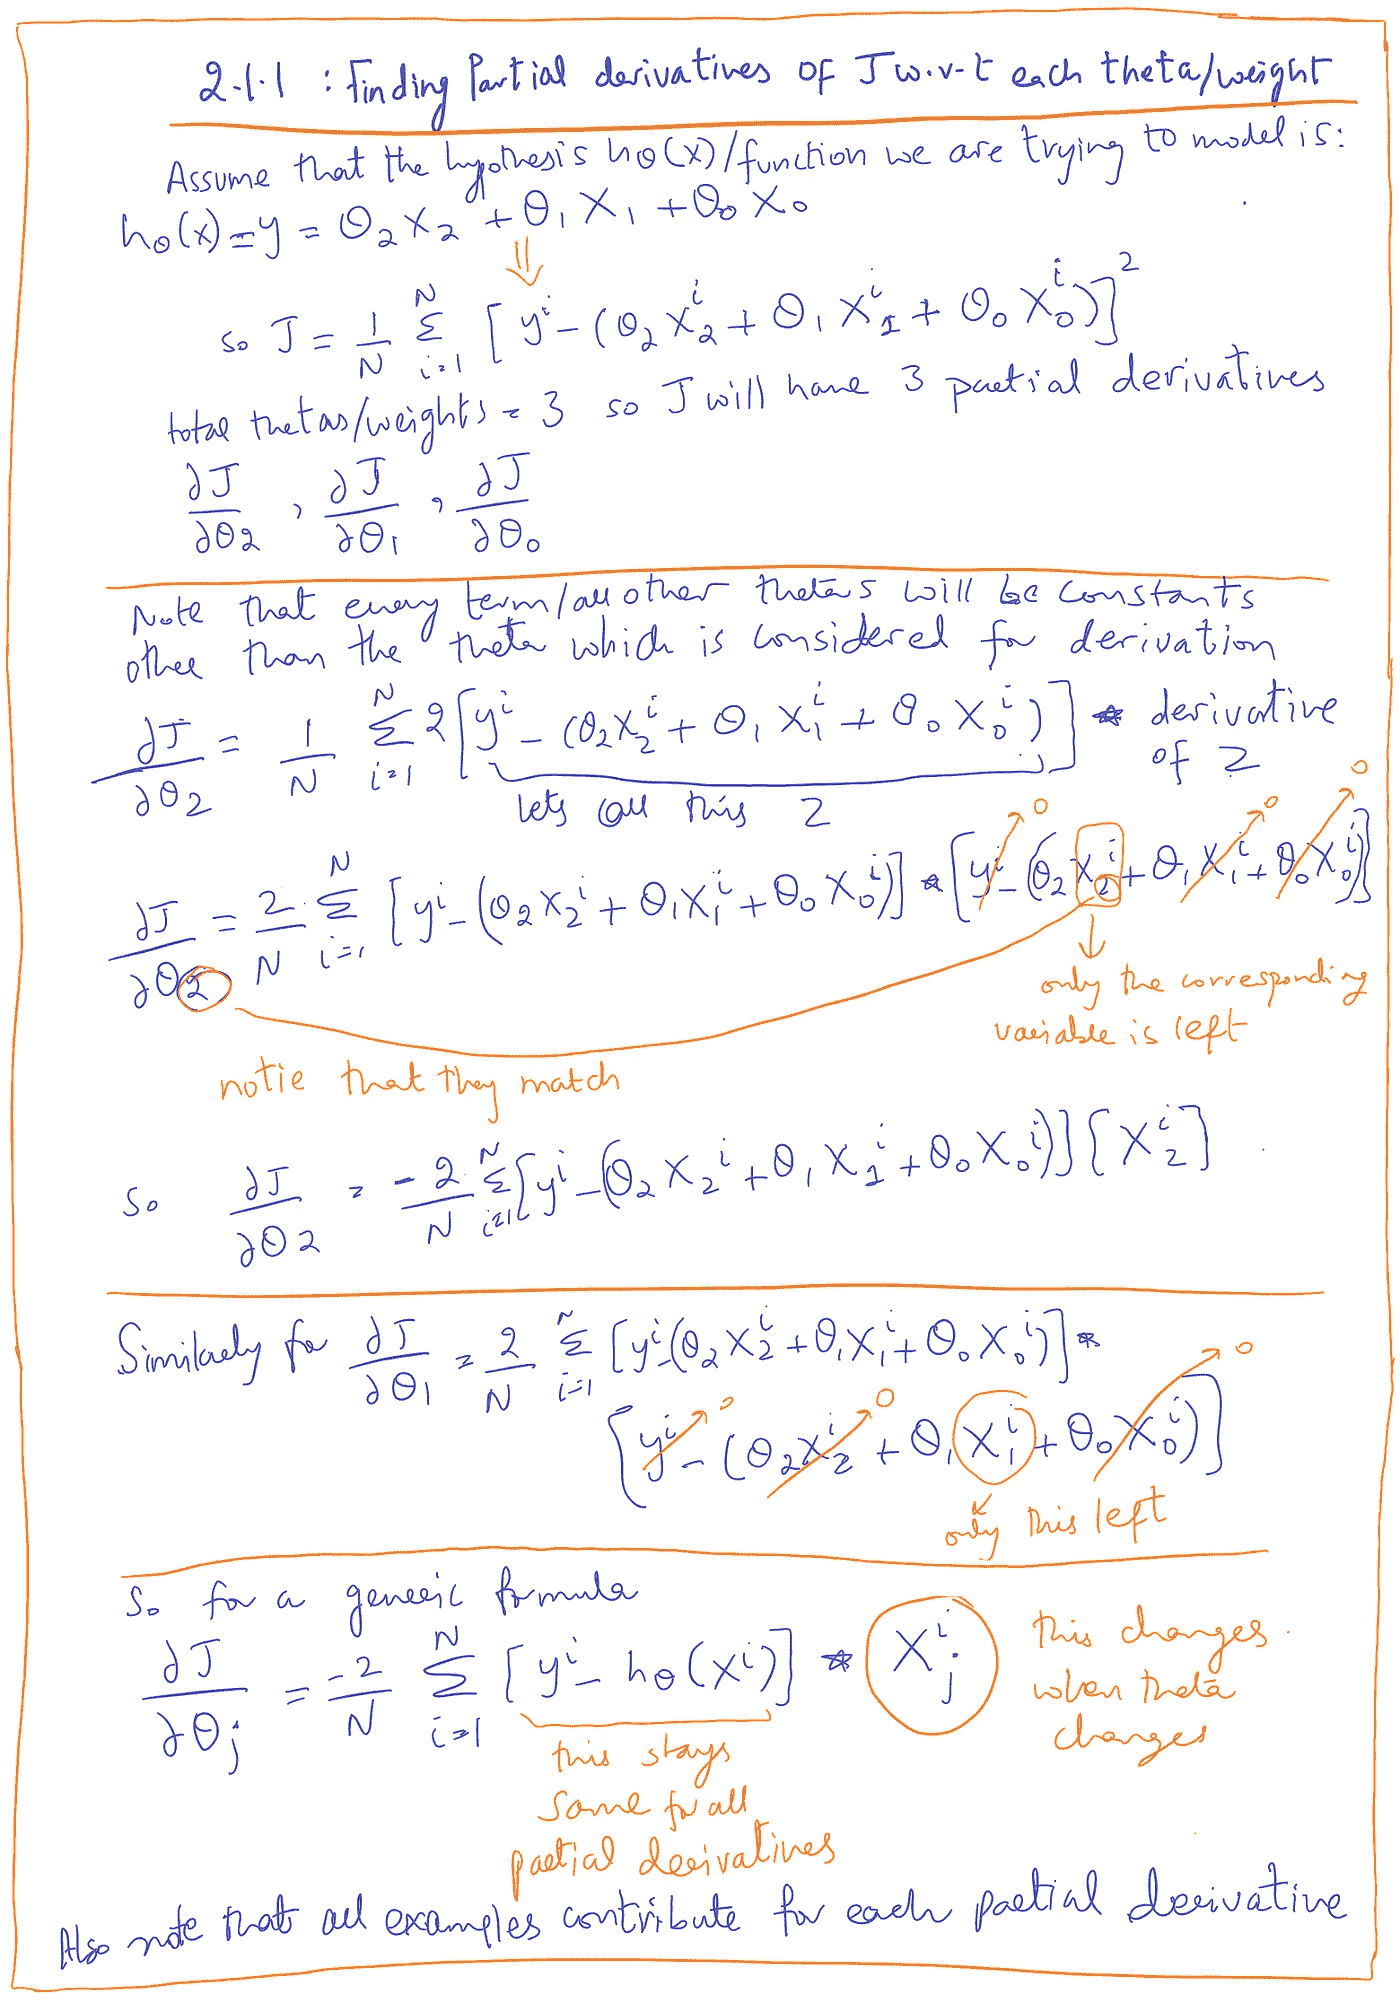 2.1.1 : Finding Partial derivatives of J w.r.t each theta/weight
Assume that the hypothesis hθ(x)/function we are trying to model is:
hθ(x) = y = θ₂X₂ + θ₁X₁ + θ₀X₀
⇓
so J = 1/N Σ_{i=1}^{N} [yⁱ - (θ₂X₂ⁱ + θ₁X₁ⁱ + θ₀X₀ⁱ)]²
total thetas/weights = 3 so J will have 3 partial derivatives
∂J/∂θ₂ , ∂J/∂θ₁ , ∂J/∂θ₀
Note that every term/all other thetas will be constants
other than the theta which is considered for derivation
∂J/∂θ₂ = 1/N Σ_{i=1}^{N} 2[yⁱ - (θ₂X₂ⁱ + θ₁X₁ⁱ + θ₀X₀ⁱ)] * derivative of Z
lets call this Z
∂J/∂θ₂ = 2/N Σ_{i=1}^{N} [yⁱ - (θ₂X₂ⁱ + θ₁X₁ⁱ + θ₀X₀ⁱ)] * [yⁱ - (θ₂X₂ⁱ + θ₁X₁ⁱ + θ₀X₀ⁱ)]
0 0 0
only the corresponding
variable is left
notie that they match
So ∂J/∂θ₂ = -2/N Σ_{i=1}^{N} [yⁱ - (θ₂X₂ⁱ + θ₁X₁ⁱ + θ₀X₀ⁱ)] [X₂ⁱ]
Similarly for ∂J/∂θ₁ = 2/N Σ_{i=1}^{N} [yⁱ - (θ₂X₂ⁱ + θ₁X₁ⁱ + θ₀X₀ⁱ)] *
[yⁱ - (θ₂X₂ⁱ + θ₁X₁ⁱ + θ₀X₀ⁱ)]
0 0 0
only this left
So for a generic formula
∂J/∂θⱼ = -2/N Σ_{i=1}^{N} [yⁱ - hθ(xⁱ)] * Xⱼⁱ
this changes
when theta
changes
this stays
same for all
partial derivatives
Also note that all examples contribute for each partial derivative